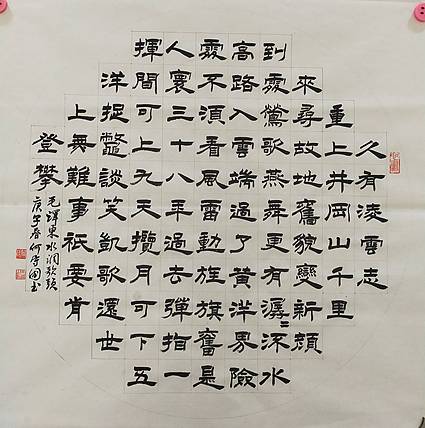 久有凌雲志
重上井岡山千里
來尋故地舊貌變新頽
到處鶯歌燕舞更有潺〻流水
高路入雲端過了黃洋界險
處不須看風雷動旌旗奮是
人寰三十八年過去彈指一
揮間可上九天攬月可下五
洋捉鼈談笑凱歌還世
上無難事祇要肯
登攀
毛澤東水調歌頭
庚子春何書